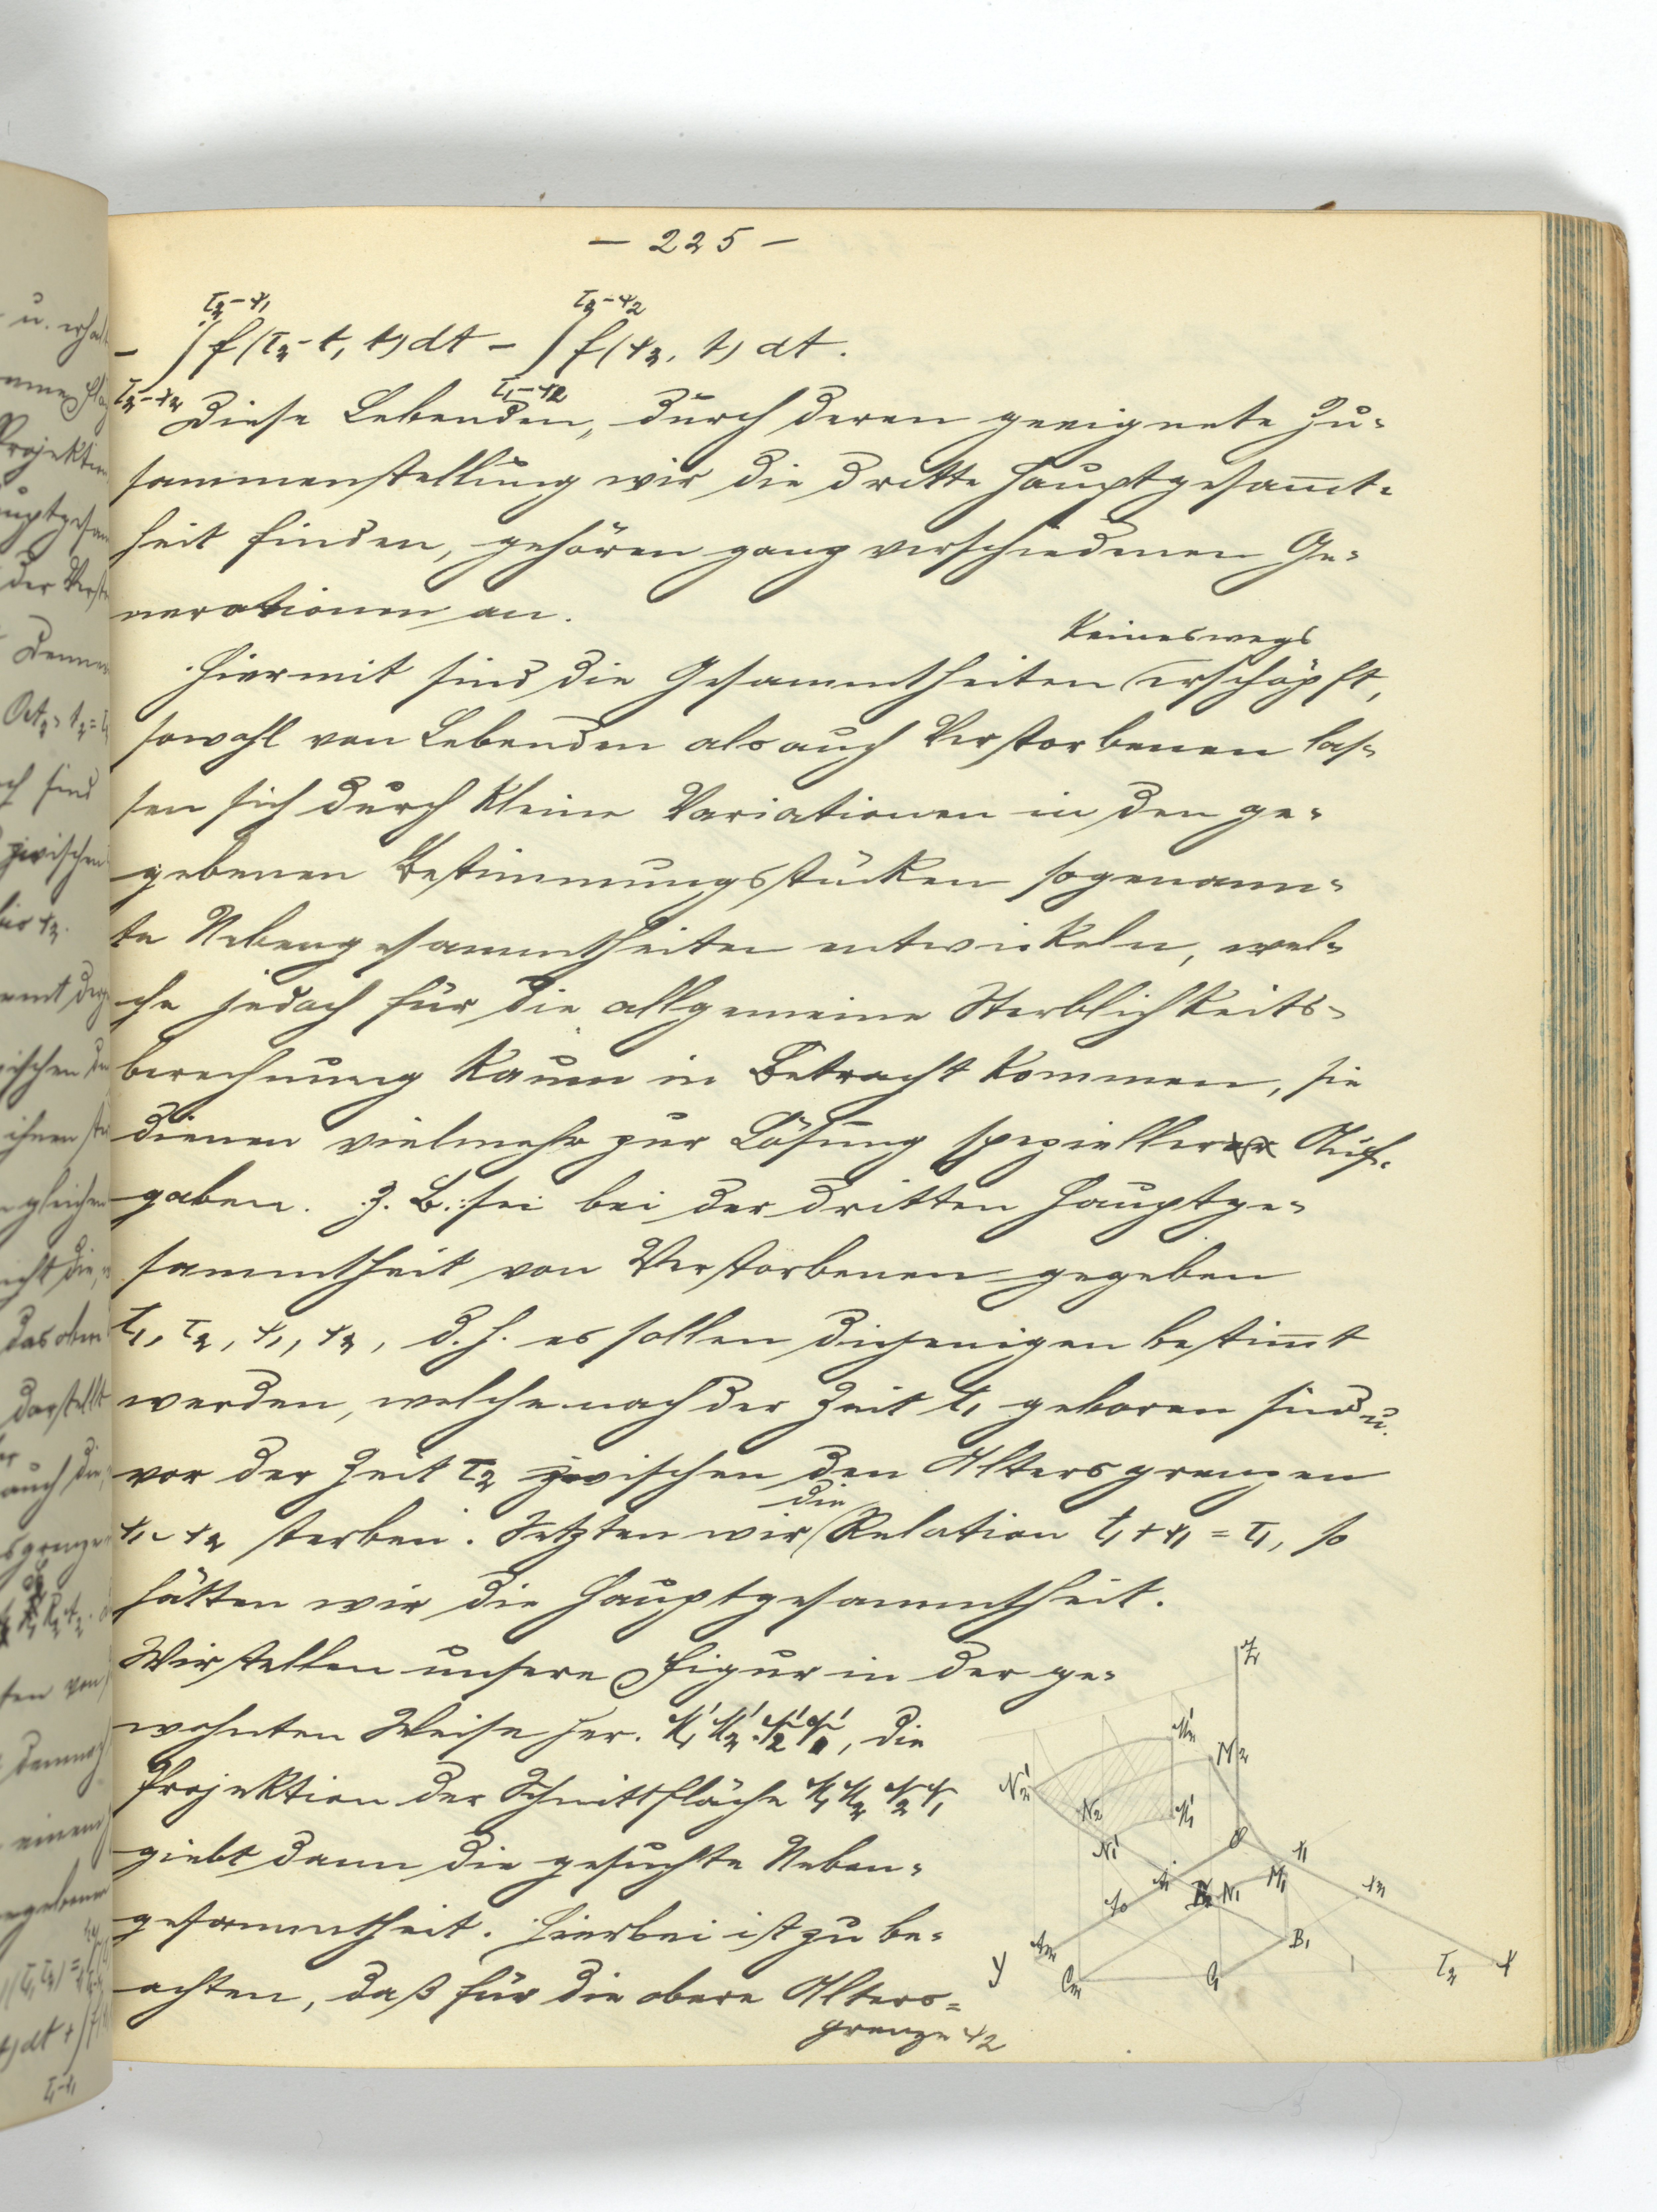 – 225 –
– ∫_{τ₂–x₂}^{τ₂–x₁} f(τ₂–t, t) dt – ∫_{τ₁–x₂}^{τ₂–x₂} f(x₂, t) dt.
Diese Lebenden, durch deren geeignete Zu-
sammenstellung wir die dritte Hauptgesam̅t-
heit finden, gehören ganz verschiedenen Ge-
nerationen an.
keineswegs
Hiermit sind die Gesammtheiten erschöpft,
sowohl von Lebenden als auch Verstorbenen las-
sen sich durch kleine Variationen in den ge-
gebenen Bestimmungsstücken sogenann-
te Nebengesammtheiten entwickeln, wel-
che jedoch für die allgemeine Sterblichkeits-
berechnung kaum in Betracht kommen, sie
dienen vielmehr zur Lösung spezieller Auf-
gaben. Z. B.: sei bei der dritten Hauptge-
sammtheit von Verstorbenen gegeben
t₁, τ₂, x₁, x₂, d. h. es sollen diejenigen bestim̅t
werden, welche nach der Zeit t₁ geboren sind u.
vor der Zeit τ₂ zwischen den Altersgrenzen
x₁ – x₂ sterben. Setzten wir die Relation t₁ + x₁ = τ₁, so
hätten wir die Hauptgesammtheit.
Wir stellen unsere Figur in der ge-
wohnten Weise her. M₁' M₂' N₂' N₁', die
Projektion der Schnittfläche M₁ M₂ N₂ N₁
giebt dann die gesuchte Neben-
gesammtheit. Hierbei ist zu be-
achten, daß für die obere Alters-
grenze x₂
Z
M₂'
M₂
N₂'
N₂
M₁'
N₁'
O
x₁
M₁
N₁
x₂
B₁
Y
C₂
C₁
τ₂
X